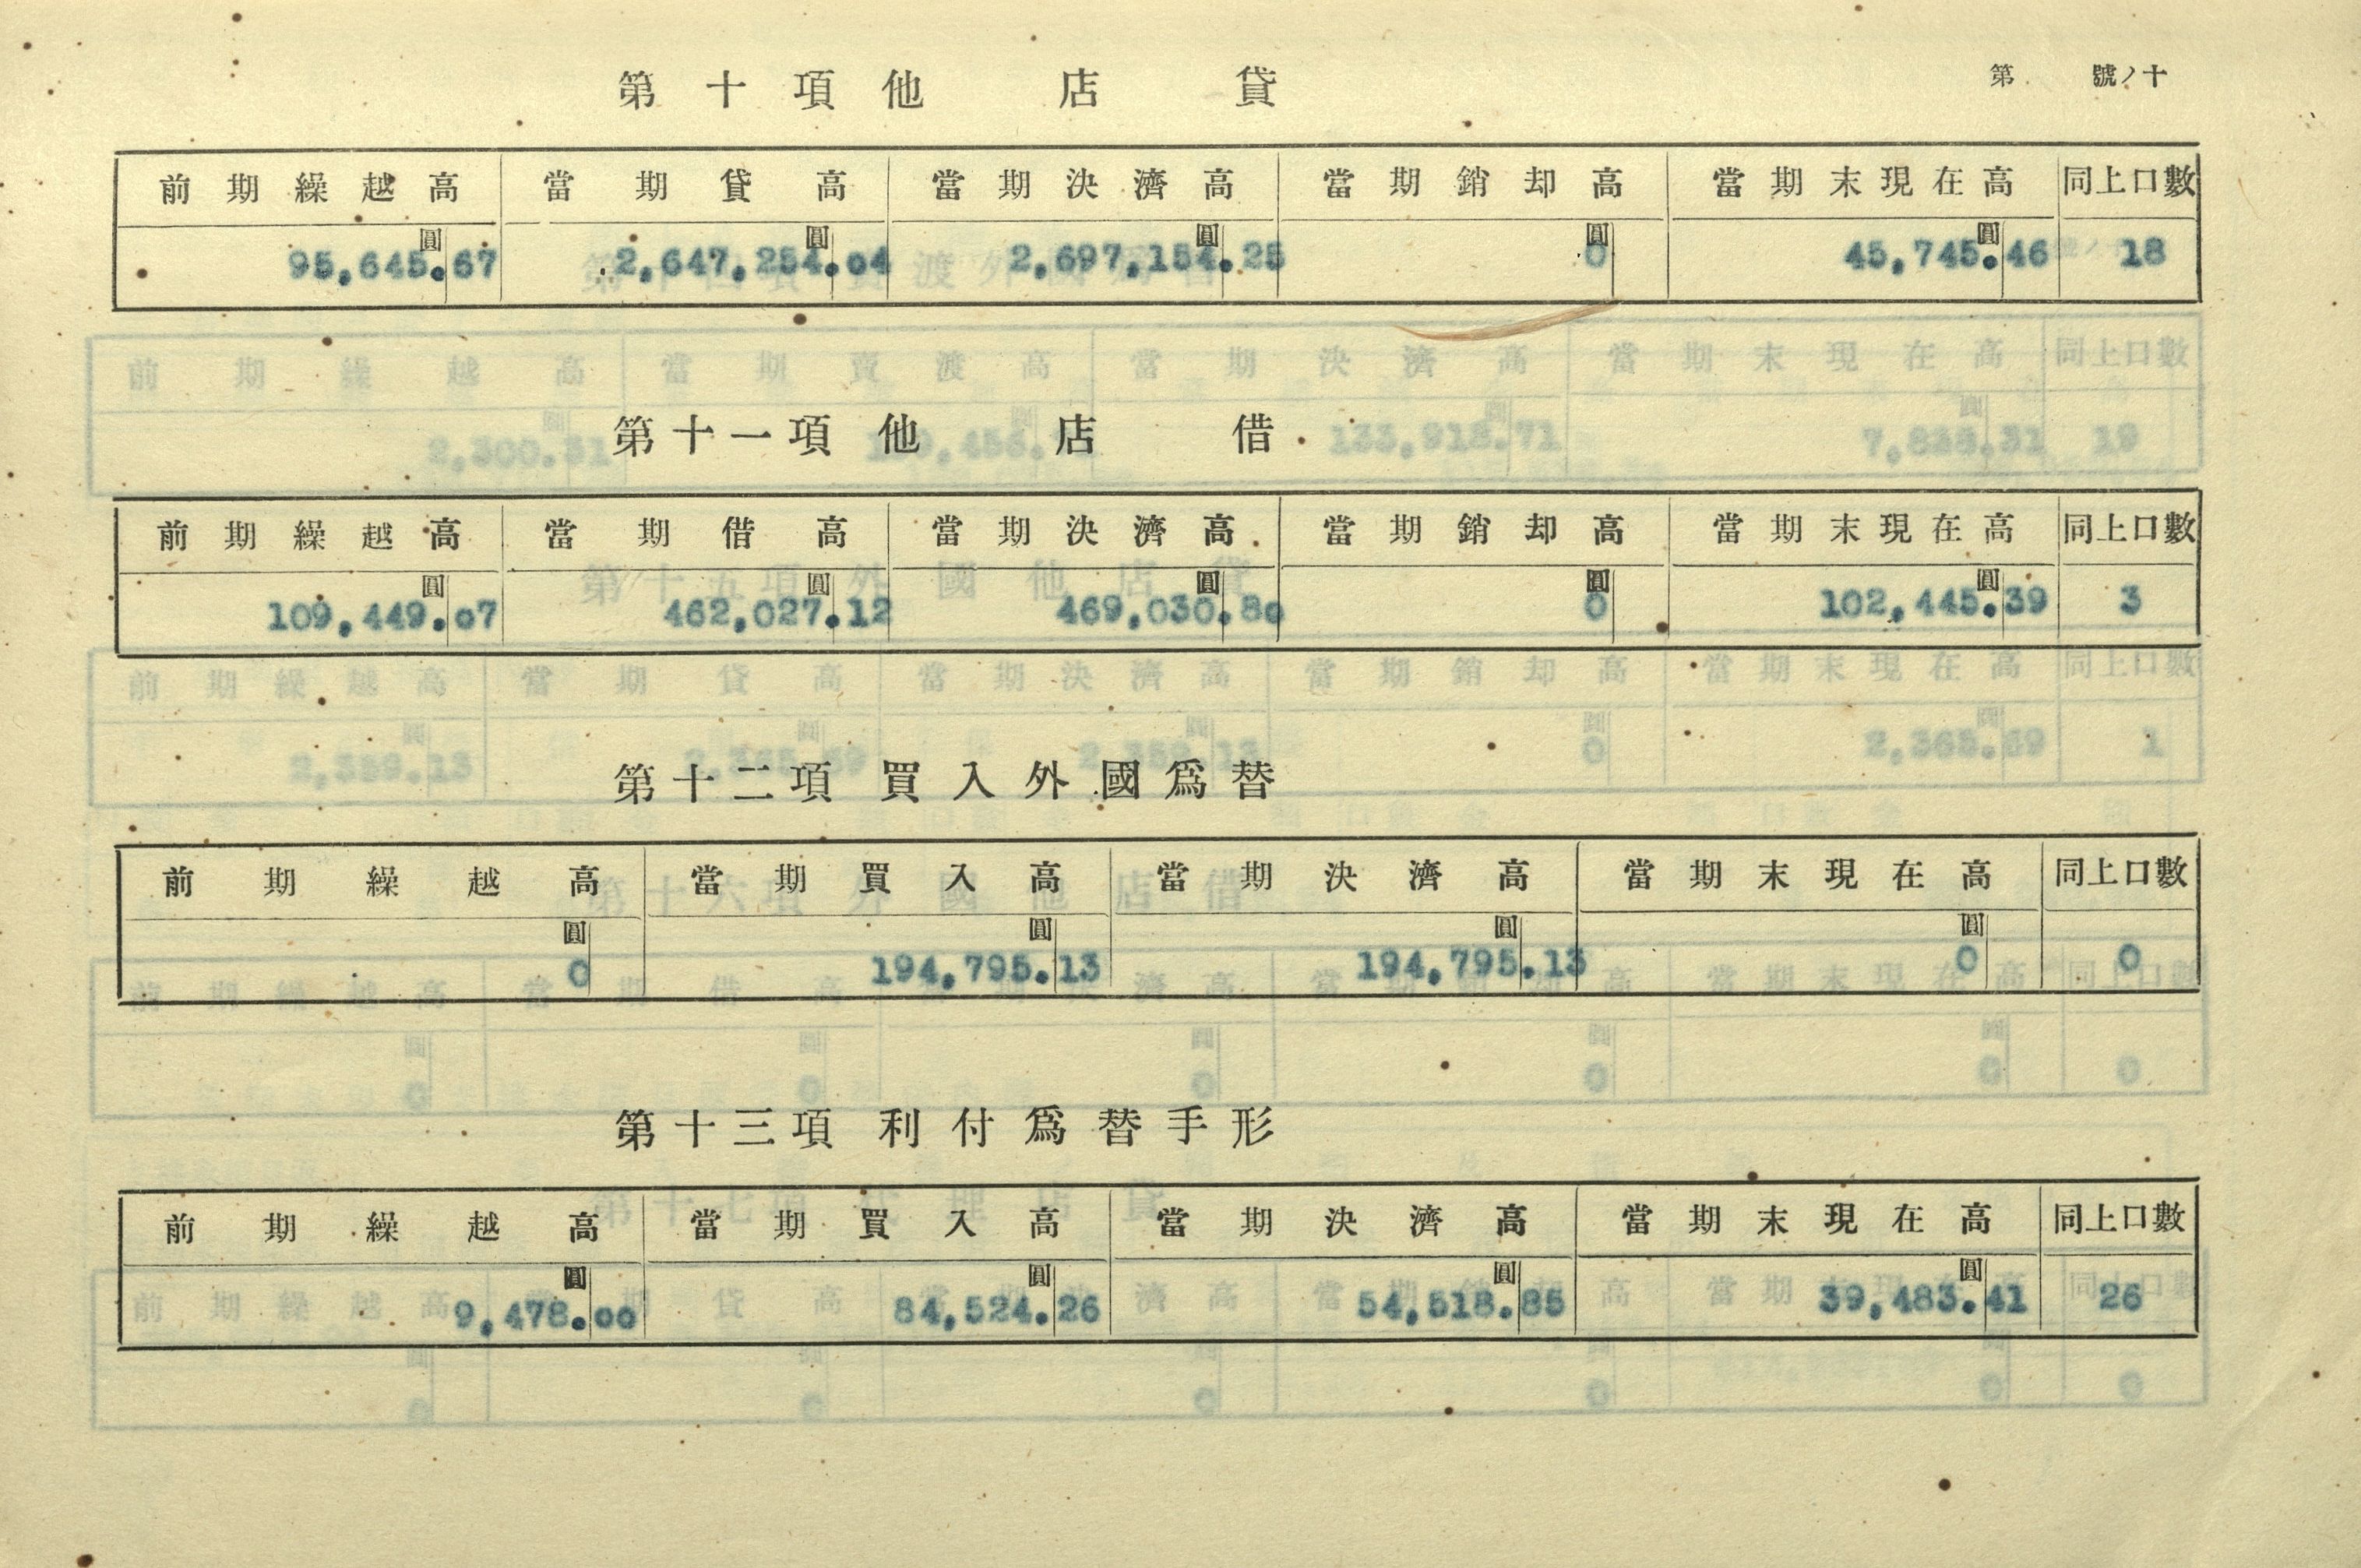 第 號ノ十
第十項 他店貸
前期繰越高 當期貸高 當期決濟高 當期銷却高 當期末現在高 同上口數
圓 圓 圓 圓 圓
95,645.67 2,647,254.04 2,697,154.25 0 45,745.46 18
第十一項 他店借
前期繰越高 當期借高 當期決濟高 當期銷却高 當期末現在高 同上口數
圓 圓 圓 圓 圓
109,449.07 462,027.12 469,030.80 0 102,445.39 3
第十二項 買入外國爲替
前期繰越高 當期買入高 當期決濟高 當期末現在高 同上口數
圓 圓 圓 圓
0 194,795.13 194,795.13 0 0
第十三項 利付爲替手形
前期繰越高 當期買入高 當期決濟高 當期末現在高 同上口數
圓 圓 圓 圓
9,478.00 84,524.26 54,518.85 39,483.41 26